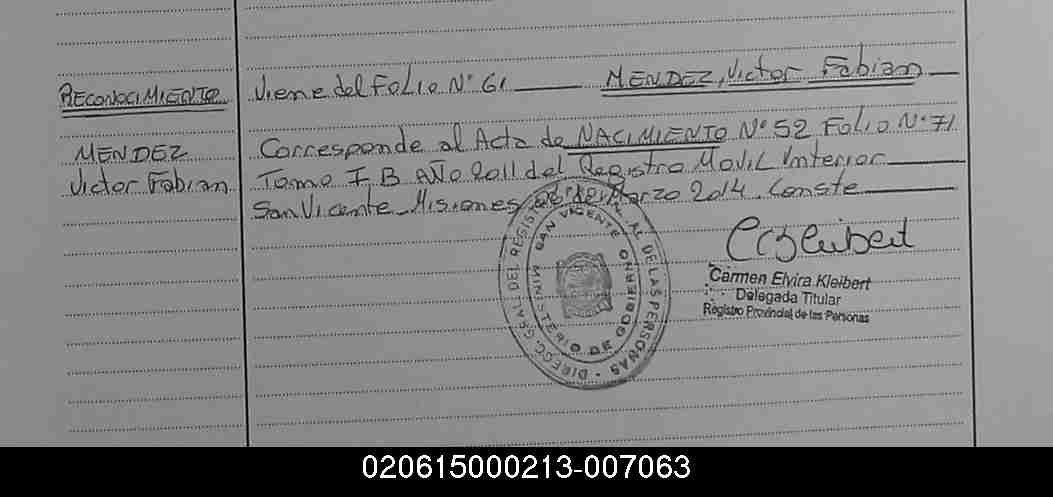 RECONOCIMIENTO
MENDEZ
Victor Fabian
Viene del Folio N° 61 MENDEZ, Victor Fabian
Corresponde al Acta de NACIMIENTO N° 52 Folio N° 71
Tomo I B Año 2011 del Registro Movil Interior
San Vicente Misiones de Marzo 2014. Conste
DIRECC. GRAL DEL REGISTRO DE LAS PERSONAS
SAN VICENTE
MINISTERIO DE GOBIERNO
Carmen Elvira Kleibert
Delegada Titular
Registro Provincial de las Personas
020615000213-007063